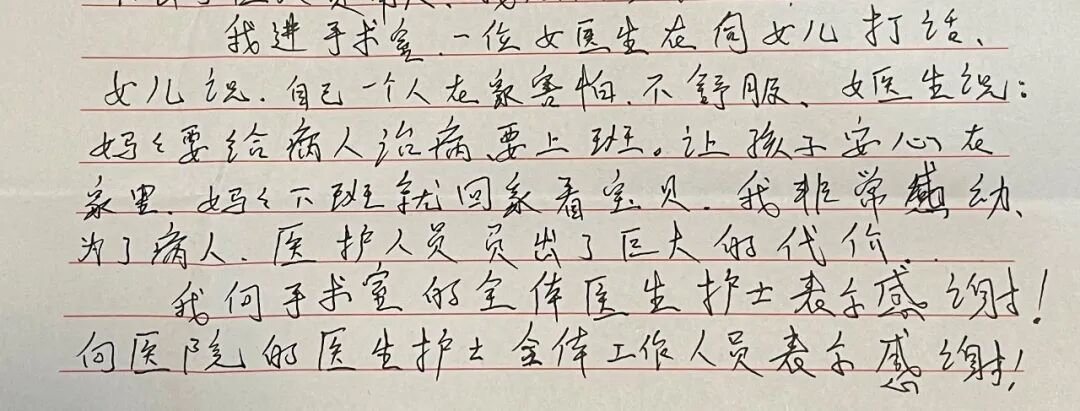 我进手术室、一位女医生在向女儿打话、
女儿说、自己一个人在家害怕、不舒服、女医生说：
妈々要给病人治病、要上班。让孩子安心在
家里、妈々下班就回家看宝贝、我非常感动、
为了病人、医护人员员出了巨大的代价、
我向手术室的全体医生护士表示感谢！
向医院的医生护士全体工作人员表示感谢！